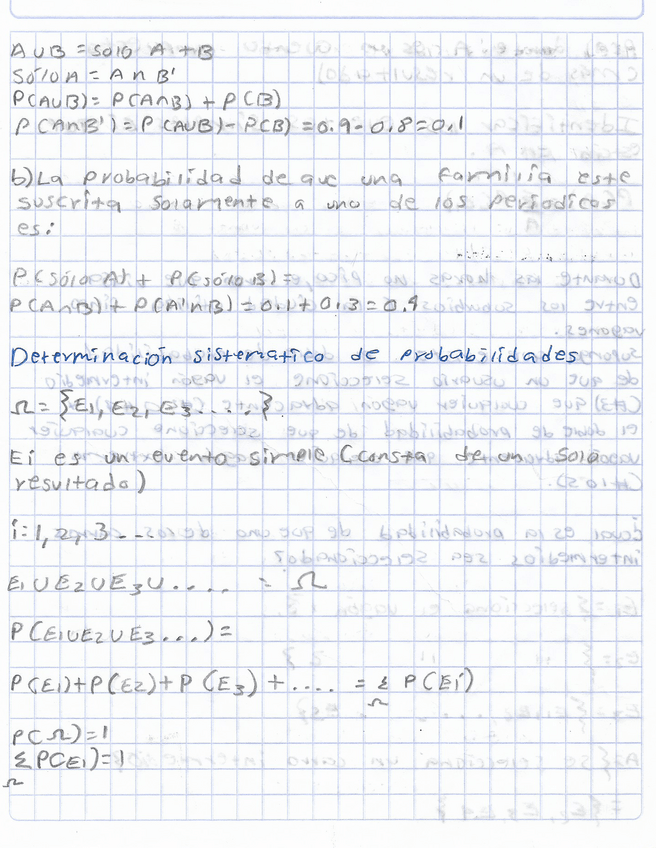 A∪B = solo A + B
Sólo A = A∩B'
P(A∪B) = P(A∩B) + P(B)
P(A∩B') = P(A∪B) - P(B) = 0.9 - 0.8 = 0.1
b) La probabilidad de que una familia este
suscrita solamente a uno de los periodicos
es:
P(sólo A) + P(sólo B) =
P(A∩B) + P(A'∩B) = 0.1 + 0.3 = 0.4
Determinación sistematico de probabilidades
Ω = {E1, E2, E3 .....}
Ei es un evento simple (consta de un solo
resultado)
i = 1, 2, 3 - - -
E1 ∪ E2 ∪ E3 ∪ .... = Ω
P(E1 ∪ E2 ∪ E3 ...) =
P(E1) + P(E2) + P(E3) + .... = Σ P(Ei)
Ω
P(Ω) = 1
Σ P(Ei) = 1
Ω